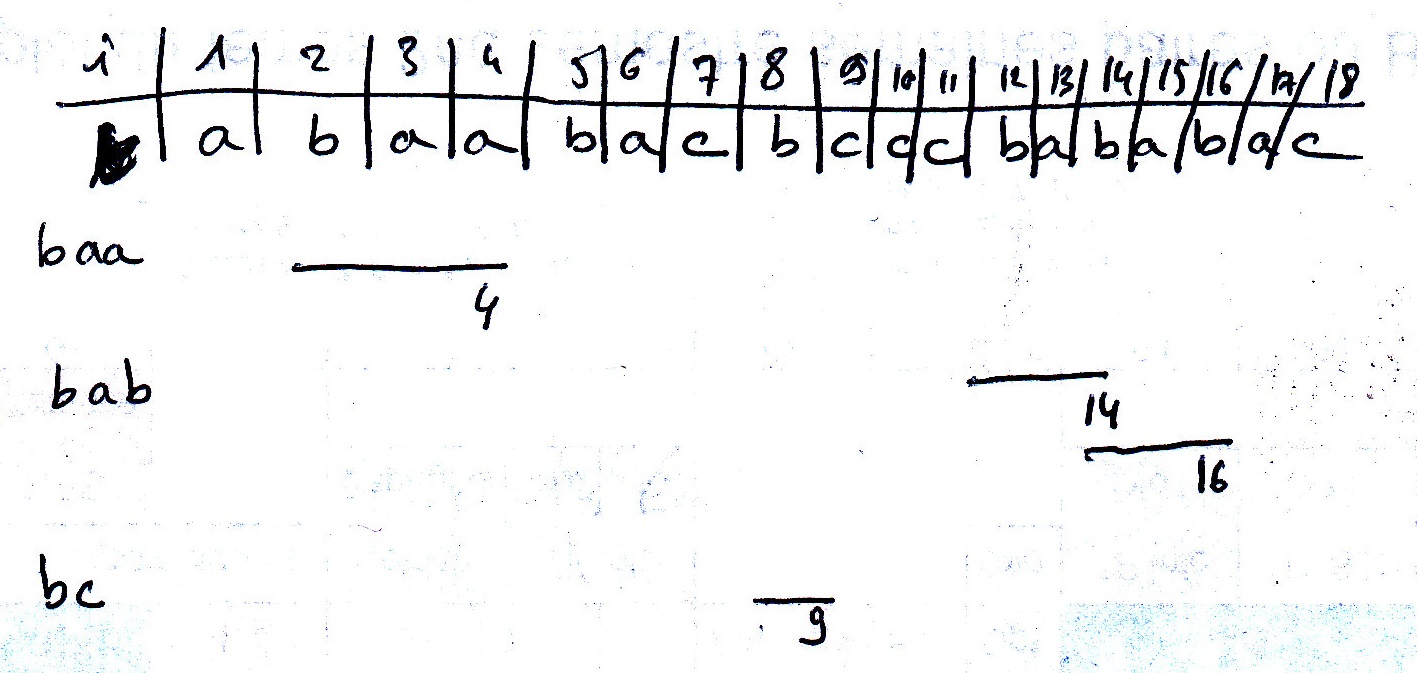 i 1 2 3 4 5 6 7 8 9 10 11 12 13 14 15 16 17 18
a b a a b a c b c c c b a b a b a c
baa
4
bab
14
16
bc
9